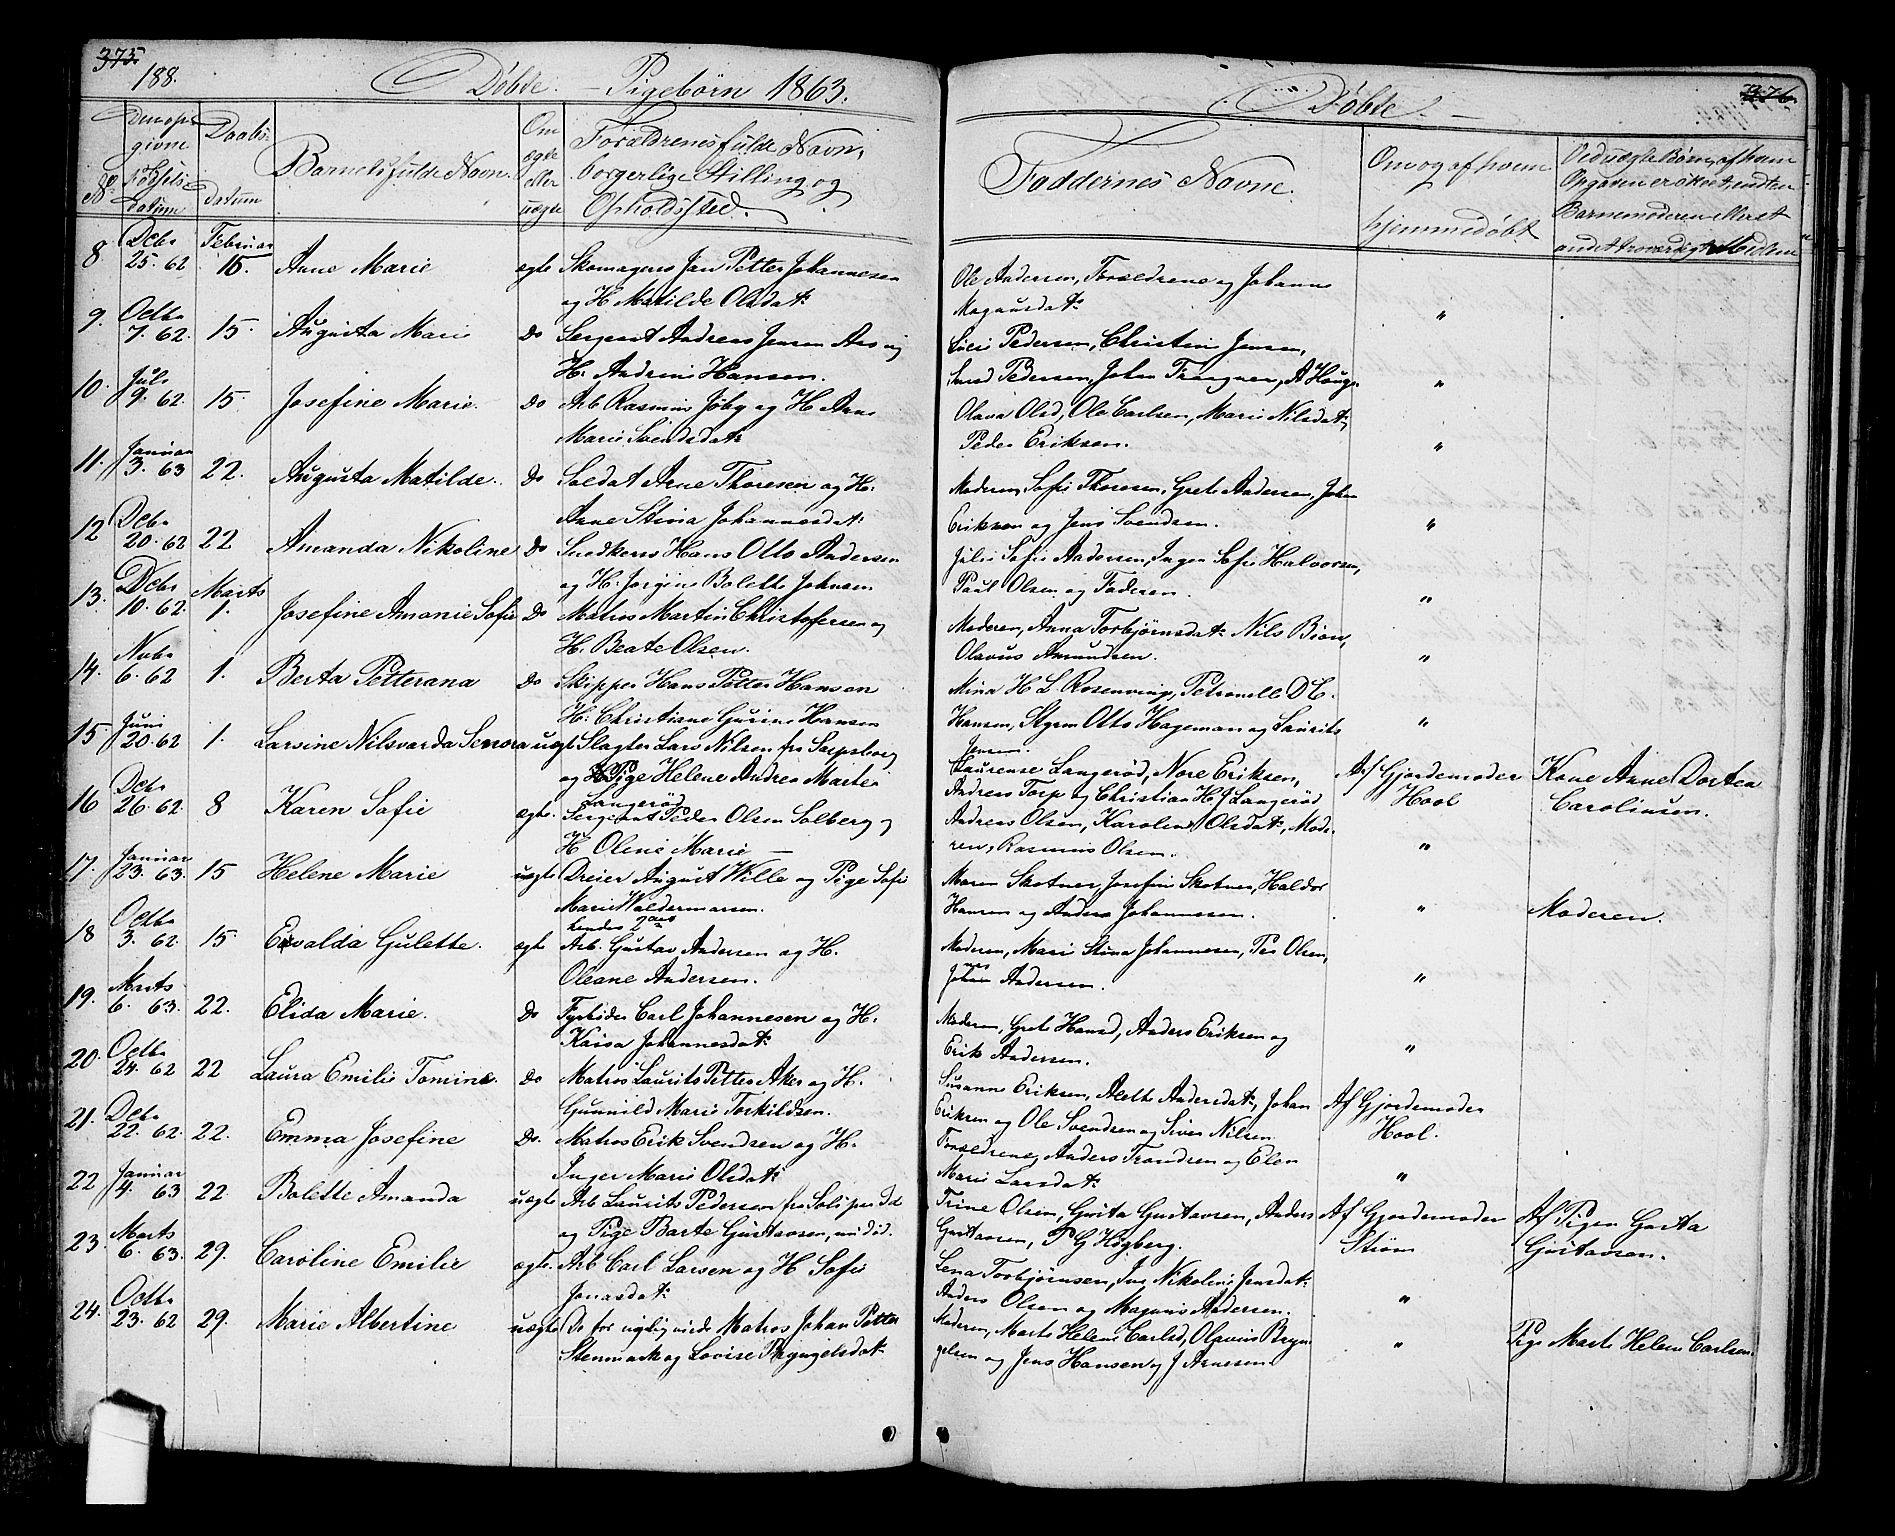 375.
188.
Döbte. — Pigebörn 1863.
No
Den op-
givne
Födsels-
datum
Daabs-
datum
Barnets fulde Navn.
Om
ægte
eller
uægte
Forældrenes fulde Navn,
borgerlige Stilling og
Opholdssted.
8 Debr 25. 62 Februar 15. Anne Marie ægte Skomagers Jan Petter Johannesen
og H Matilde Olsdat:
9. Octbr 7. 62. 15. Augusta Marie Do Sergeant Andreas Jensen Aas og
H: Andrine Hansen.
10. Juli 9. 62 15. Josefine Marie. Do Arb Rasmus Jöby og H Anne
Marie Svendsdat:
11. Januar 3. 63 22. Augusta Matilde. Do Soldat Arne Thoresen og H:
Anne Stina Johannesdat:
12 Debr 20. 62 22 Amanda Nikoline Do Snedkers Hans Otto Andersen
og H: Jörgine Bolette Johnsen
13. Debr 10. 62. Marts 1. Josefine Amonie Sofie Do Matros Martin Christofersen og
H. Beate Olsen.
14. Nvbr 6. 62 1. Berta Petterana Do Skipper Hans Petter Hansen
H: Christiane Gurine Hansen
15 Juni 20. 62 1. Larsine Nilsvarda Senora uægt Slagter Lars Nilsen fra Sarpsborg
og Pige Helene Andrea Martia
Langeröd
16 Debr 26. 62 8 Karen Sofie ægte. Sergeant Peder Olsen Solberg og
H Olene Marie —
17. Januar 23. 63. 15 Helene Marie uægte Dreier August Wille og Pige Sofie
Marie Waldermarsen.
hendes 2det
18 Octbr 3. 62. 15. Evalda Gulette. ægte Arb. Gustav Andersen og H.
Oleane Andersen.
19. Marts 6. 63. 22. Elida Marie. Do Fyrböder Carl Johannesen og H.
Kaisa Johannesdat:
20. Octbr 24. 62 22 Laura Emilie Tomine. Do Matros Laurits Petter Aker og H.
Gunnild Marie Torkildsen.
21. Debr 22. 62. 22. Emma Josefine Do. Matros Erik Svendsen og H.
Inger Marie Olsdat:
22 Januar 4. 63 22. Bolette Amanda uægte Arb Laurits Pedersen fra Soli
og Pige Barte Gustavsen,
23. Marts 6. 63. 29. Caroline Emilie ægte. Arb Carl Larsen og H Sofie
Jonasdat:
24. Octbr 23. 62 29. Marie Albertine uægte Do for Matros Johan Petter
Stenmark og Lovise Bryngelsdat:
376.
Döbte. —
Faddernes Navne.
Om og af hvem
hjemmedöbt
Ved uægte Börn, af hvem
Opgaven er skeet, endten
Barnemoderen eller et
andet troværdigt Medlem
Ole Andersen, Forældrene og Johanne
Magnusdat: "
Lovise Pedersen, Christine Jensen,
Svend Pedersen, Johan Frangner, A Hauge "
Olava Olsd, Ole Carlsen, Marie Nilsdat,
Peder Eriksen. "
Moderen, Sofie Thoresen, Grete Andersen, Johan
Eriksen og Jens Svendsen. "
Julie Sofie Andersen, Inger Sofie Halvorsen,
Paul Olsen og Faderen. "
Moderen, Anna Torbjörnsdat: Nils Bion,
Olavus Amundsen. "
Mina H L Rosenvinge, Petronelle D C.
Hansen, Styrm Otto Hageman og Laurits "
Jensen.
Laurense Langeröd, Nore Eriksen, Af Gjordemoder Kone Anne Dortea
Andreas Torp og Christian H. Langeröd Hool Carolinsen.
Andreas Olsen, Karoline Olsdat, Mode-
ren, Rasmus Olsen. "
Maren Skotner, Josefine Skotner, Haldor
Hansen og Anders Johannesen. " Moderen.
Moderen, Marie Stina Johannesen, Per Olsen,
Johannes Andersen. "
Moderen, Grete Hansd, Anders Eriksen og
Erik Andersen. "
Susanne Eriksen, Alette Andersdat, Johan Af Gjordemoder
Eriksen og Ole Svendsen og Siver Nilsen Hool.
Forældrene, Anders Trondsen og Elen
Marie Larsdat: "
Trine Olsen, Gusta Gustavsen, Anders Af Gjordemoder Af Pigen Gusta
Gustavsen, P G Högberg. Ström Gustavsen.
Lena Torbjörnsen, Nikoline Jensdat:
Anders Olsen og Magnus Andersen. "
Moderen, Marte Helene Carlsd, Olavius Bryn-
gelsen og Jens Hansen og J Arnesen. " Pige Marte Helene Carlsen.